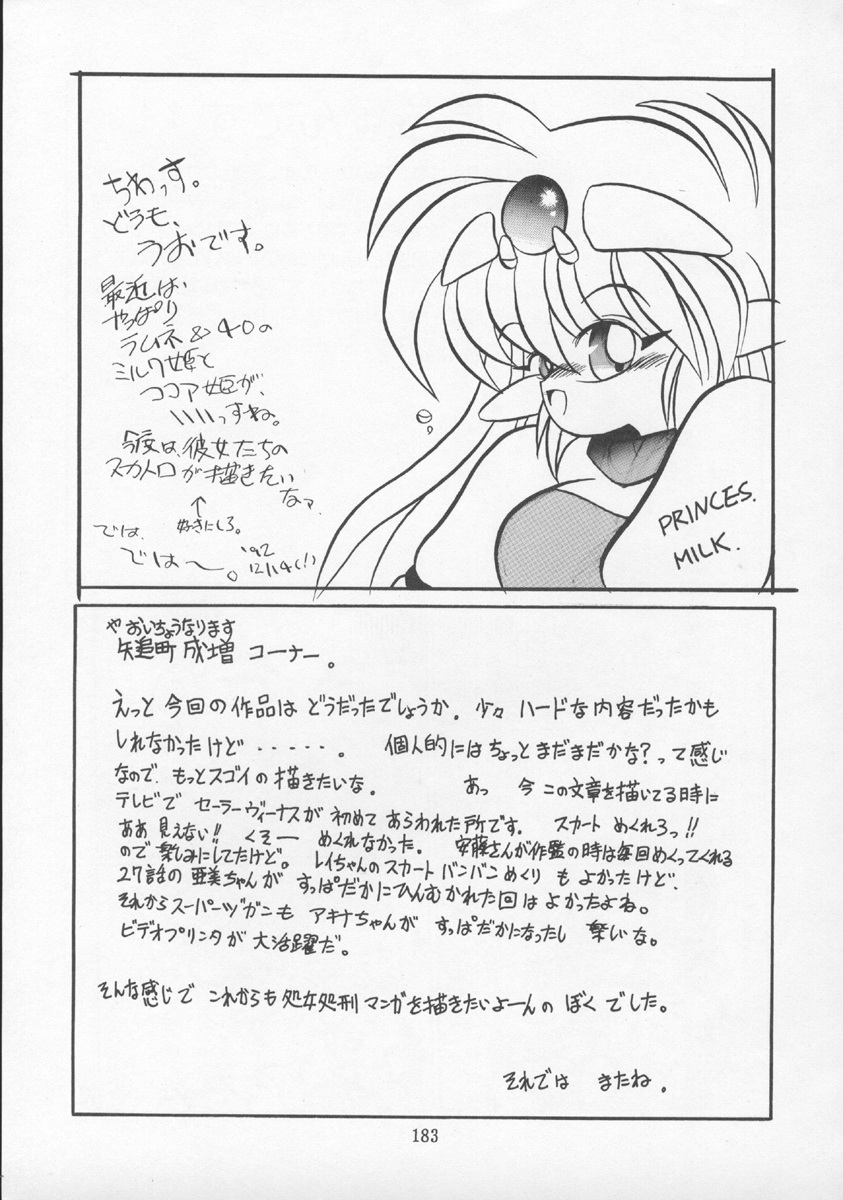 ちわっす。
どうも、
うおです。
最近は、
やっぱり
ラムネ&40の
ミルク姫と
ココア姫が、
いいっすね。
今度は、彼女たちの
スカトロが描きたい
なァ
↑
好きにしろ。
では、
では〜。
'92
12/14(!)
PRINCES.
MILK.
やおいちょうなります
矢追町 成増 コーナー。
えっと 今回の作品は どうだったでしょうか。少々 ハードな内容だったかも
しれなかったけど・・・・・。 個人的にはちょっとまだまだかな?って感じ
なので、もっとスゴイの描きたいな。 あっ 今 この文章を描いてる時に
テレビで セーラーヴィーナスが 初めて あらわれた所です。 スカート めくれろっ!!
ああ 見えない!! くそー めくれなかった。 安藤さんが作監の時は毎回めくってくれる
ので 楽しみにしてたけど。 レイちゃんのスカート バンバンめくり も よかったけど、
27話の 亜美ちゃんが すっぱだかにひんむかれた回は よかったよね。
それから スーパーヅガンも アキナちゃんが すっぱだかになったし 楽しいな。
ビデオプリンタが 大活躍だ。
そんな感じで これからも 処女処刑 マンガを描きたいよーんの ぼく でした。
それでは またね。
183